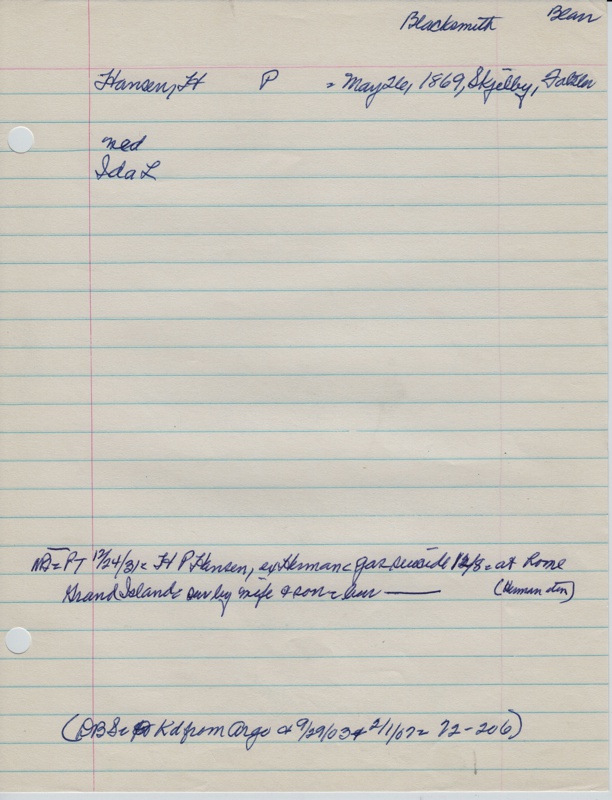 Blacksmith Bean
Hansen, H P = May 26, 1869, Skjelby, Falster
med
Ida L
= PT 12/24/31 = H P Hansen, ex Herman = gas suicide 12/8 = at home
Grand Island = sur by wife & son = bur —— (Herman stn)
(DBS = Kd from Argo + 9/29/03 + 2/1/07 = 72-206)